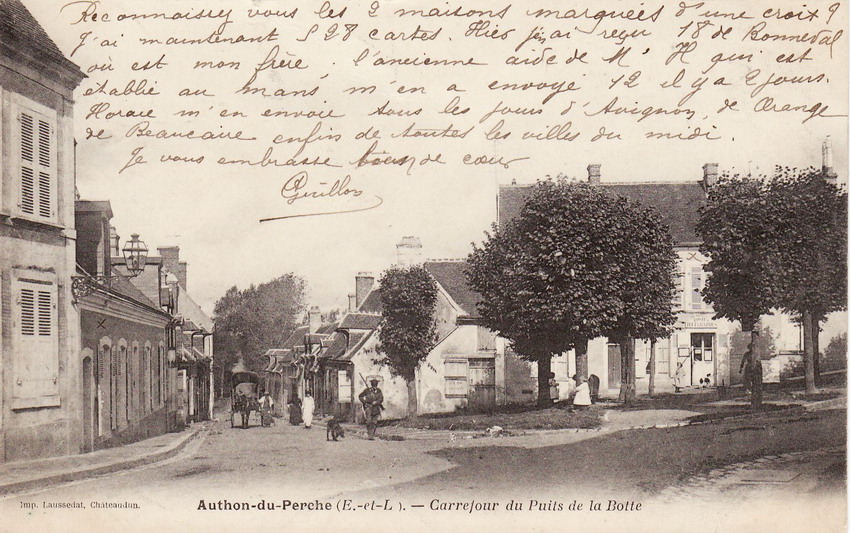 Reconnaissez vous les 2 maisons marquées d'une croix ?
J'ai maintenant 528 cartes. Hier j'en ai reçu 18 de Bonneval
où est mon frère. l'ancienne aide de Mr H qui est
établie au mans m'en a envoyé 12 il y a 2 jours.
Horace m'en envoie tous les jours d'Avignon, de Orange
de Beaucaire enfin de toutes les villes du midi.
Je vous embrasse de cœur
Imp. Laussedat, Châteaudun.
Authon-du-Perche (E.-et-L.). — Carrefour du Puits de la Botte